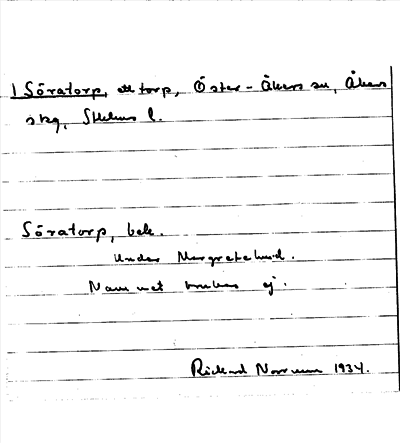 1 Söratorp, ett torp, Öster-Åkers sn, Åkers
skg, Sthlms l.
Söratorp, bek.
Under Margretelund.
Namnet brukas ej.
Rickard 1934.